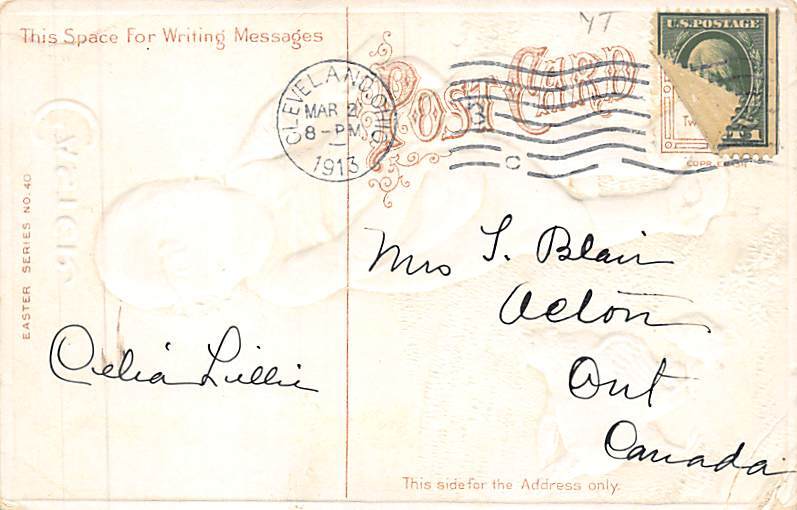 This Space For Writing Messages
POST CARD
YT
U.S. POSTAGE
1
CLEVELAND, OHIO
MAR 2
8-PM
1913
3
C
EASTER SERIES NO. 40
Mrs T. Blair
Acton
Ont
Canada
Celia Lillie
This side for the Address only.